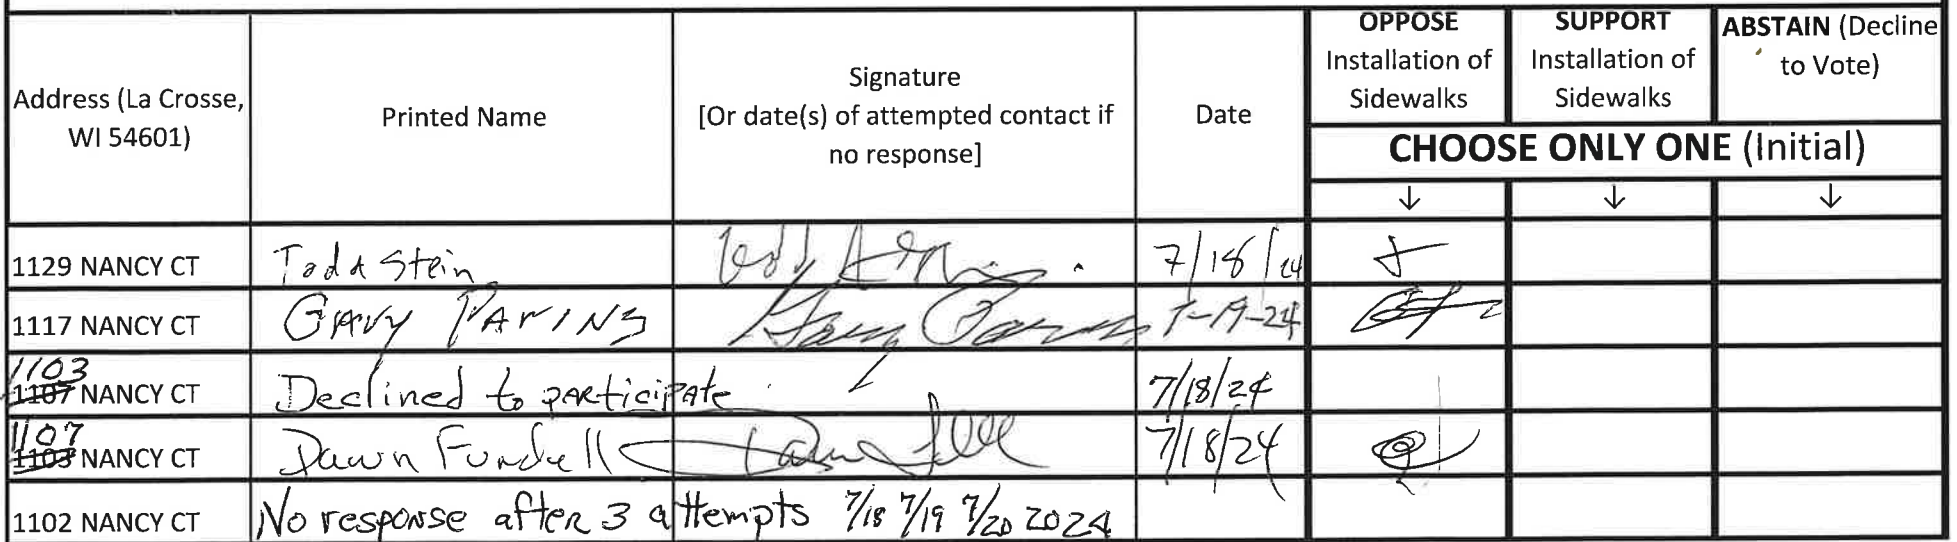 Address (La Crosse, WI 54601) Printed Name Signature [Or date(s) of attempted contact if no response] Date OPPOSE Installation of Sidewalks SUPPORT Installation of Sidewalks ABSTAIN (Decline to Vote)
CHOOSE ONLY ONE (Initial)
↓ ↓ ↓
1129 NANCY CT Todd Stein 7/18/24
1117 NANCY CT GARY PARINS Gary Parins 7-19-24
1103
1107 NANCY CT Declined to participate 7/18/24
1107
1103 NANCY CT Dawn Fundell 7/18/24
1102 NANCY CT No response after 3 attempts 7/18 7/19 7/20 2024